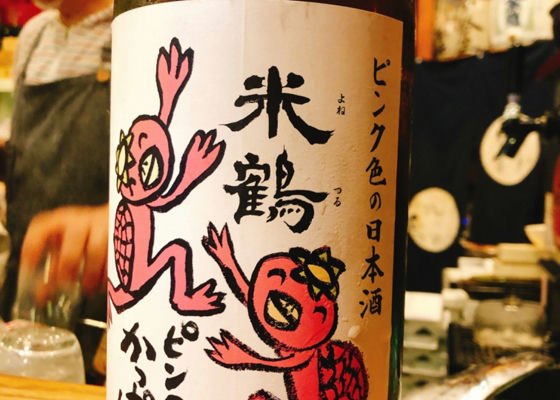 ピンク色の日本酒
米鶴
よね
つる
ピンク
かっぱ